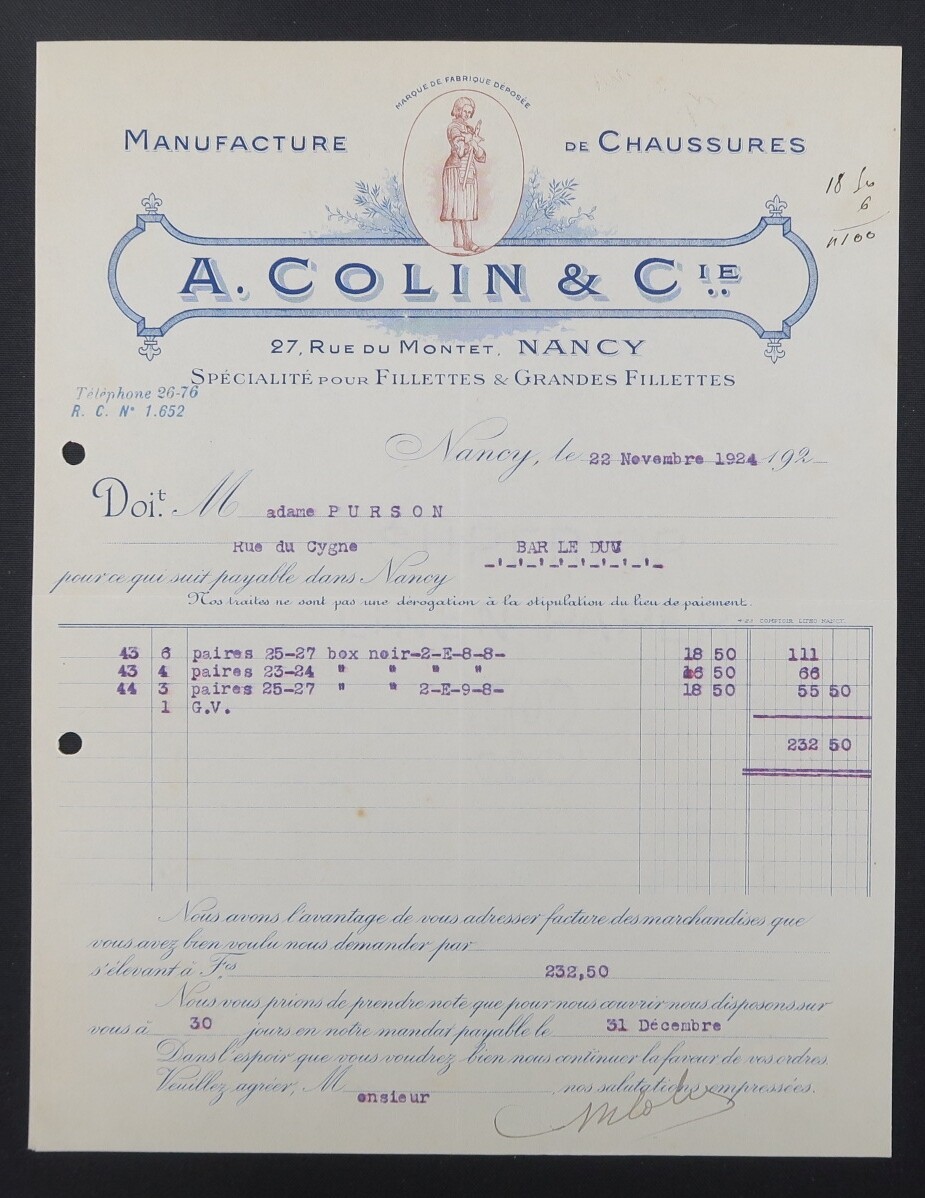 MARQUE DE FABRIQUE DÉPOSÉE
MANUFACTURE DE CHAUSSURES
18 50
6
11100
A. COLIN & CIE
27, RUE DU MONTET, NANCY
SPÉCIALITÉ POUR FILLETTES & GRANDES FILLETTES
Téléphone 26-76
R. C. N° 1.652
Nancy, le 22 Novembre 1924 192
Doit M adame PURSON
Rue du Cygne BAR LE DUC
pour ce qui suit payable dans Nancy
Nos traites ne sont pas une dérogation à la stipulation du lieu de paiement.
COMPTOIR LITHO NANCY
43 6 paires 25-27 box noir-2-E-8-8- 18 50 111
43 4 paires 23-24 " " " " 16 50 66
44 3 paires 25-27 " " 2-E-9-8- 18 50 55 50
1 G.V.
232 50
Nous avons l'avantage de vous adresser facture des marchandises que
vous avez bien voulu nous demander par
s'élevant à Fcs 232,50
Nous vous prions de prendre note que pour nous couvrir nous disposons sur
vous à 30 jours en notre mandat payable le 31 Décembre
Dans l'espoir que vous voudrez bien nous continuer la faveur de vos ordres
Veuillez agréer, M onsieur nos salutations empressées.